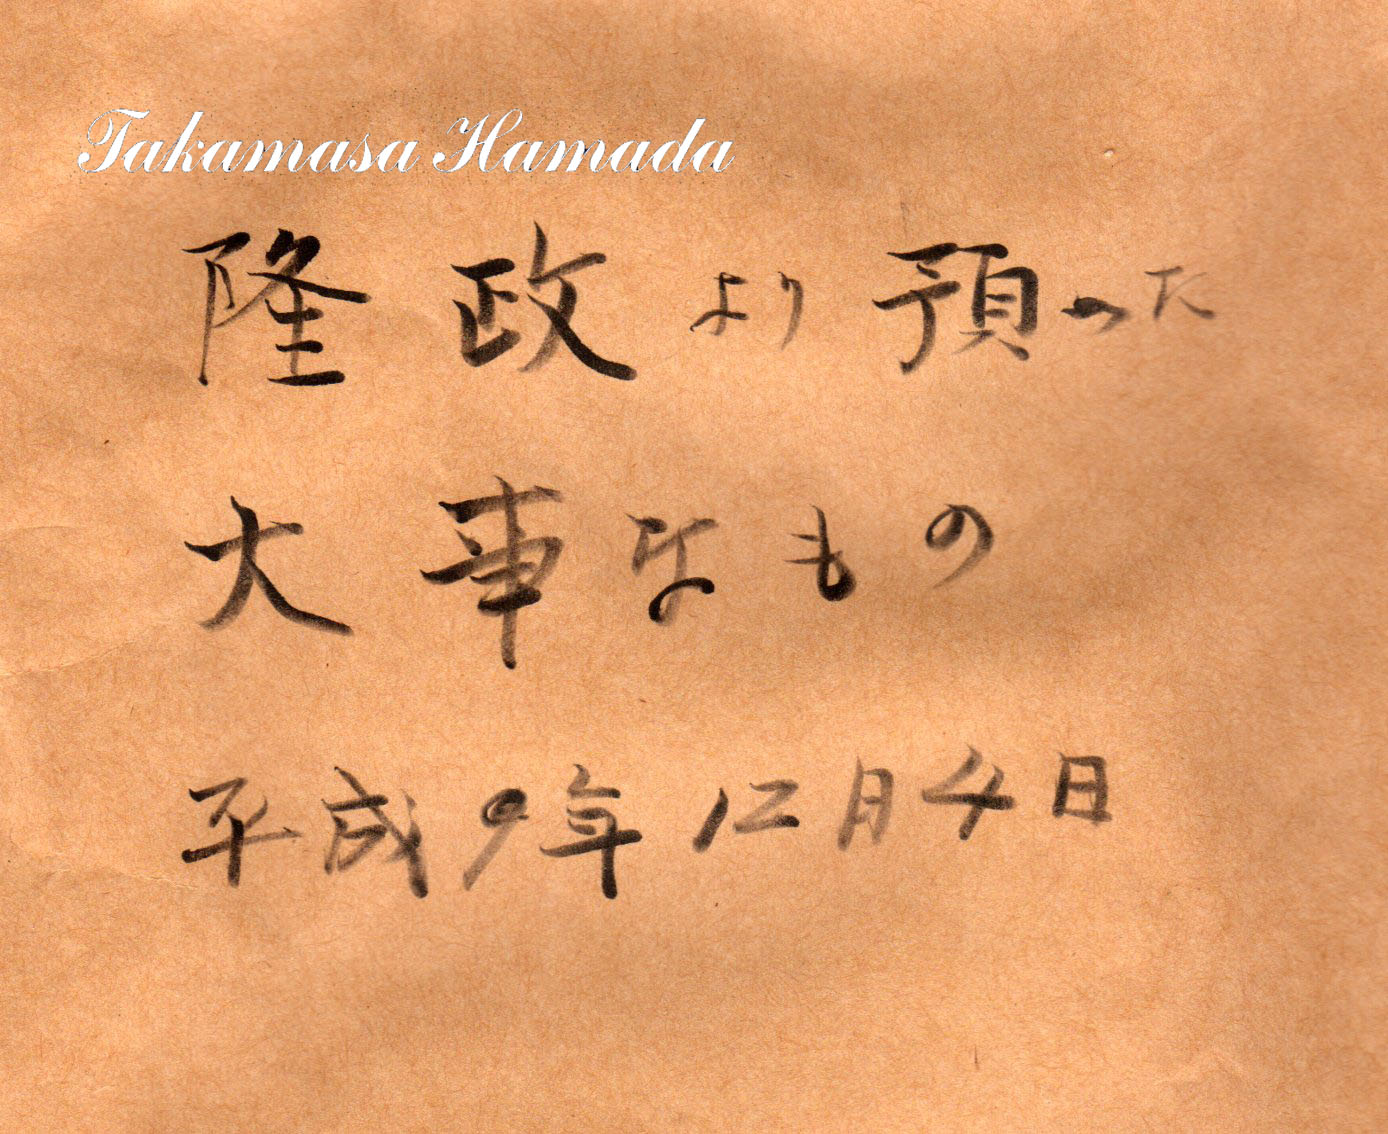 Takamasa Hamada
隆政より預った
大事なもの
平成9年12月4日